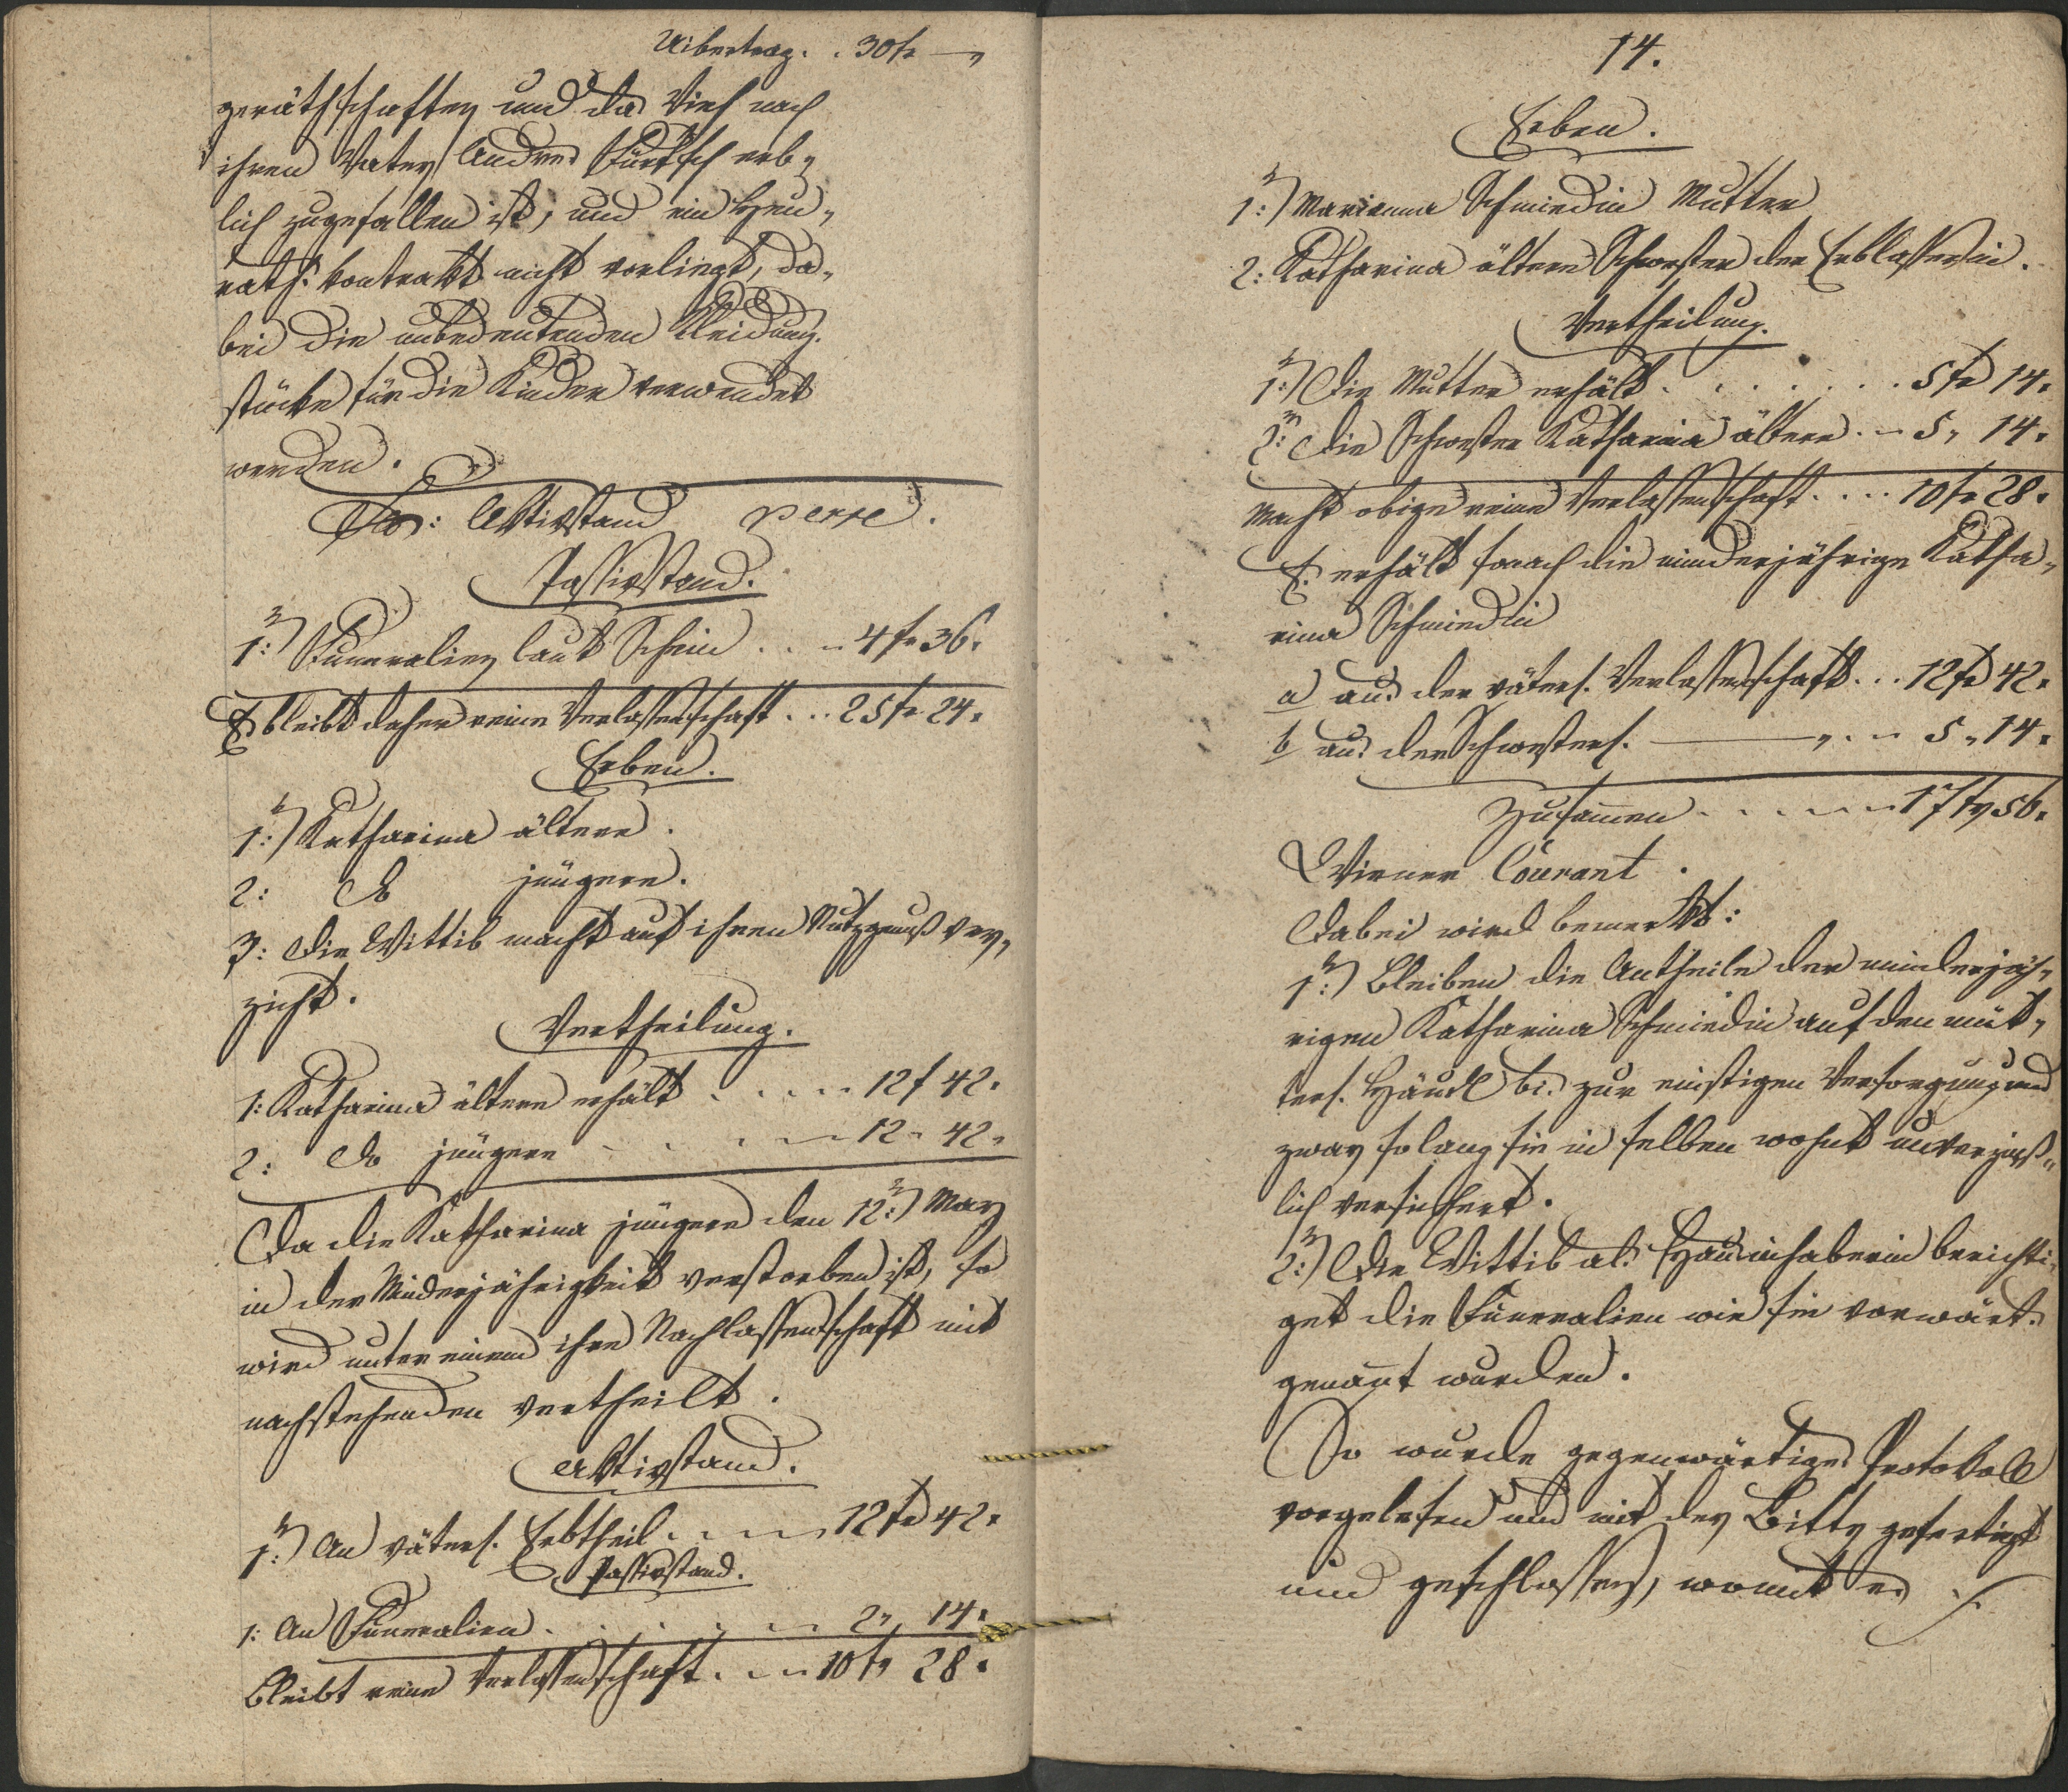 Uibertrag . . 30 fr —„
geräthschaften und das Vieh nach
ihren Vater Andres Turktsch erb„
lich zugefallen ist, und ein Heu„
raths kontrakt nicht vorliegt, da„
bei die unbedeutenden Kleidung„
stücke für die Kinder verwendet
werden.
Aktivstand per se.
Passivstand.
1: Funeralien laut Schein . . 4 fr 36.
Es bleibt daher reine Verlassenschaft . . . 25 fr 24.
Erben.
1: Katharina ältere.
2: do jüngere.
3: Die Wittib macht auf ihren Nutzgenuß ver„
zicht.
Vertheilung.
1: Katharina ältere erhält . . . . 12 f 42.
2: do jüngere . . . . 12 „ 42.
Da die Katharina jüngere den 12: May
in der Minderjährigkeit verstorben ist, so
wird unter einem ihre Nachlassenschaft mit
nachstehenden vertheilt.
Aktivstand.
1: An väterl. Erbtheil . . . . 12 fr 42.
Passivstand.
1: An Funeralien . . . . 2 „ 14.
Bleibt reine Verlassenschaft . . . 10 fr 28.
14.
Erben.
1: Marianna Schmiedin Mutter
2: Katharina ältere Schwester der Erblasserin.
Vertheilung.
1: Die Mutter erhält . . . . . . . 5 fr 14.
2: Die Schwester Katharina ältere . . 5 „ 14.
Macht obige reine Verlassenschaft . . . . 10 fr 28.
Es erhält sonach die minderjährige Katha„
rina Schmiedin
a aus der väterl. Verlassenschaft . . . 12 fr 42.
b aus der Schwesterl. ——„ . . 5 „ 14.
Zusamen . . . . . 17 fr 56.
Wiener Courant.
Dabei wird bemerkt:
1: Bleiben die Antheile der minderjäh„
rigen Katharina Schmiedin auf den müt„
terl. Häusl bis zur einstigen Versorgung und
zwar so lang sie in selben wohnt unverzinß„
lich versichert.
2: Die Wittib als Hausinhaberin berichti„
get die Funeralien wie sie vorwärts
genannt wurden.
So wurde gegenwärtiges Protokoll
vorgelesen und mit der Bitte gefertigt
und geschlossen, womit es ./.